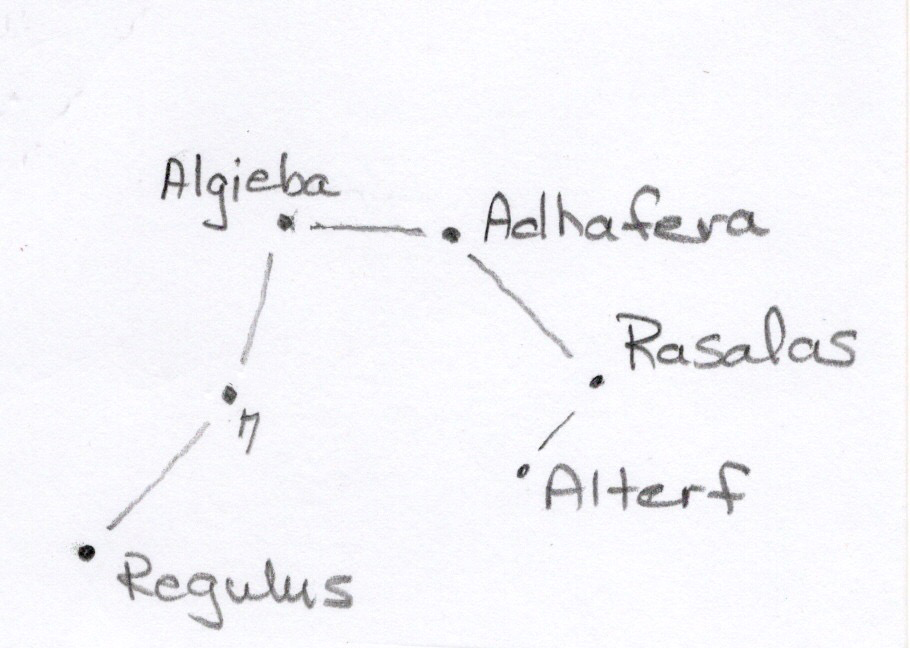 Algieba
Adhafera
Rasalas
η
Alterf
Regulus